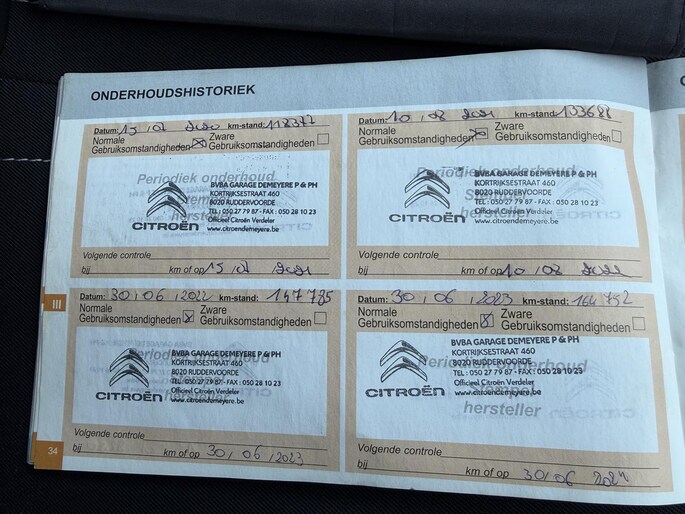 ONDERHOUDSHISTORIEK
Datum: 15 / 07 2020 km-stand: 118372
Normale Gebruiksomstandigheden ☒ Zware Gebruiksomstandigheden ☐
Periodiek onderhoud
hersteller
BVBA GARAGE DEMEYERE P & PH
KORTRIJKSESTRAAT 460
8020 RUDDERVOORDE
TEL : 050 27 79 87 - FAX : 050 28 10 23
Officieel Citroën Verdeler
www.citroendemeyere.be
CITROËN
Volgende controle
bij km of op 15 07 2021
Datum: 10 , 08 2021 km-stand: 133688
Normale Gebruiksomstandigheden ☒ Zware Gebruiksomstandigheden ☐
Periodiek onderhoud
Stempel
hersteller
BVBA GARAGE DEMEYERE P & PH
KORTRIJKSESTRAAT 460
8020 RUDDERVOORDE
TEL : 050 27 79 87 - FAX : 050 28 10 23
Officieel Citroën Verdeler
www.citroendemeyere.be
CITROËN
Volgende controle
bij km of op 10 , 08 2022
III
Datum: 30 , 06 , 2022 km-stand: 147785
Normale Gebruiksomstandigheden ☒ Zware Gebruiksomstandigheden ☐
Periodiek onderhoud
hersteller
BVBA GARAGE DEMEYERE P & PH
KORTRIJKSESTRAAT 460
8020 RUDDERVOORDE
TEL : 050 27 79 87 - FAX : 050 28 10 23
Officieel Citroën Verdeler
www.citroendemeyere.be
CITROËN
Volgende controle
bij km of op 30 , 06 , 2023
Datum: 30 , 06 , 2023 km-stand: 164752
Normale Gebruiksomstandigheden ☒ Zware Gebruiksomstandigheden ☐
Periodiek onderhoud
Stempel
hersteller
BVBA GARAGE DEMEYERE P & PH
KORTRIJKSESTRAAT 460
8020 RUDDERVOORDE
TEL : 050 27 79 87 - FAX : 050 28 10 23
Officieel Citroën Verdeler
www.citroendemeyere.be
CITROËN
Volgende controle
bij km of op 30 , 06 2024
34